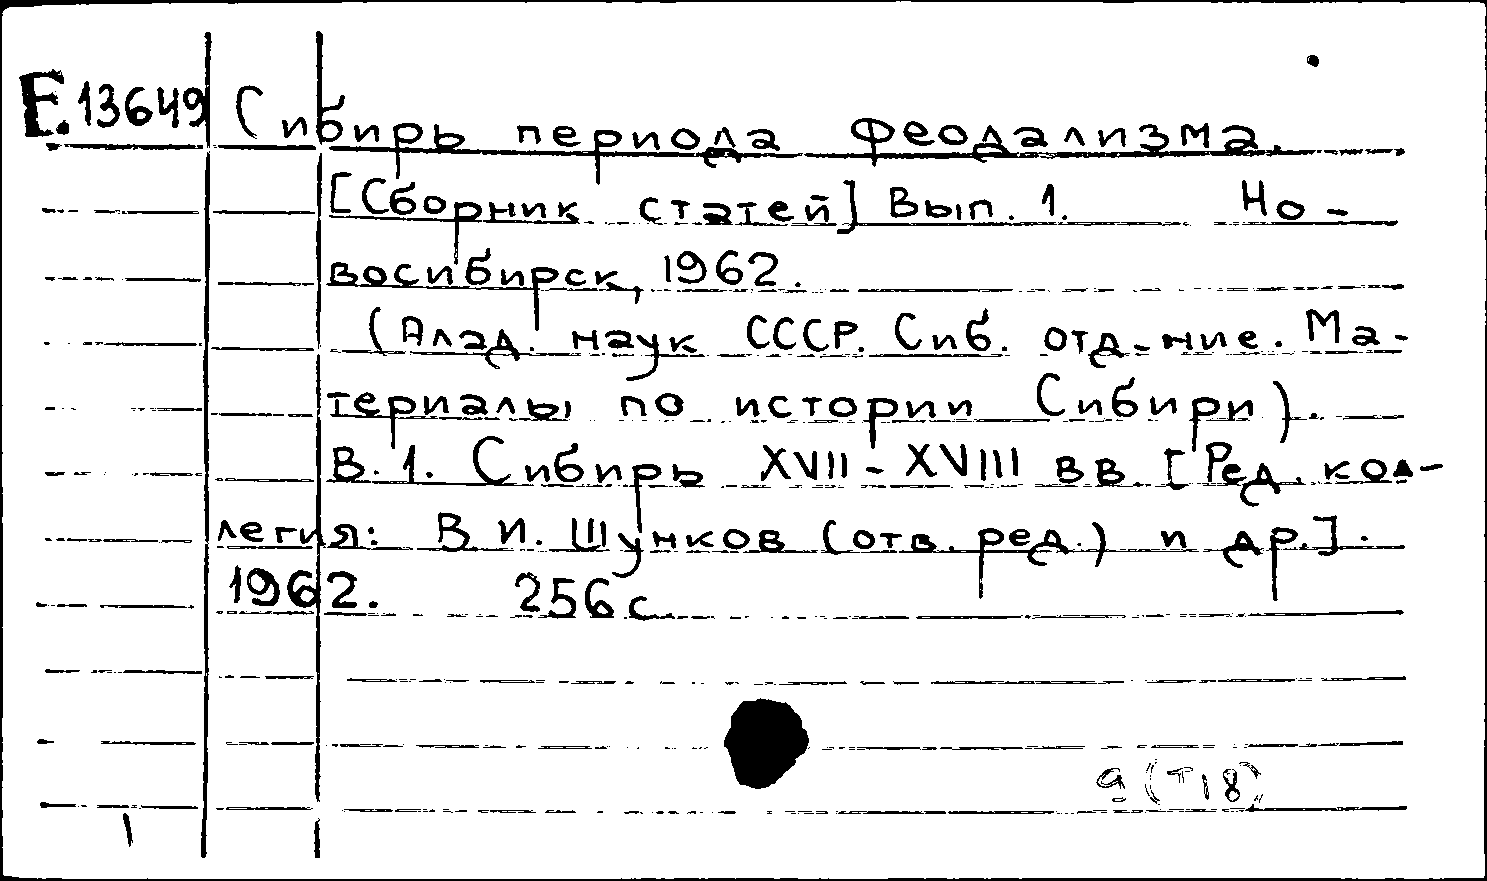 Е.13649 Сибирь периода феодализма.
[Сборник статей] Вып. 1. Но-
восибирск, 1962.
(Акад. наук СССР. Сиб. отд-ние. Ма-
териалы по истории Сибири).
В. 1. Сибирь XVII-XVIII вв. [Ред. кол-
легия: В. И. Шунков (отв. ред.) и др.].
1962. 256 с.
9(Т18)